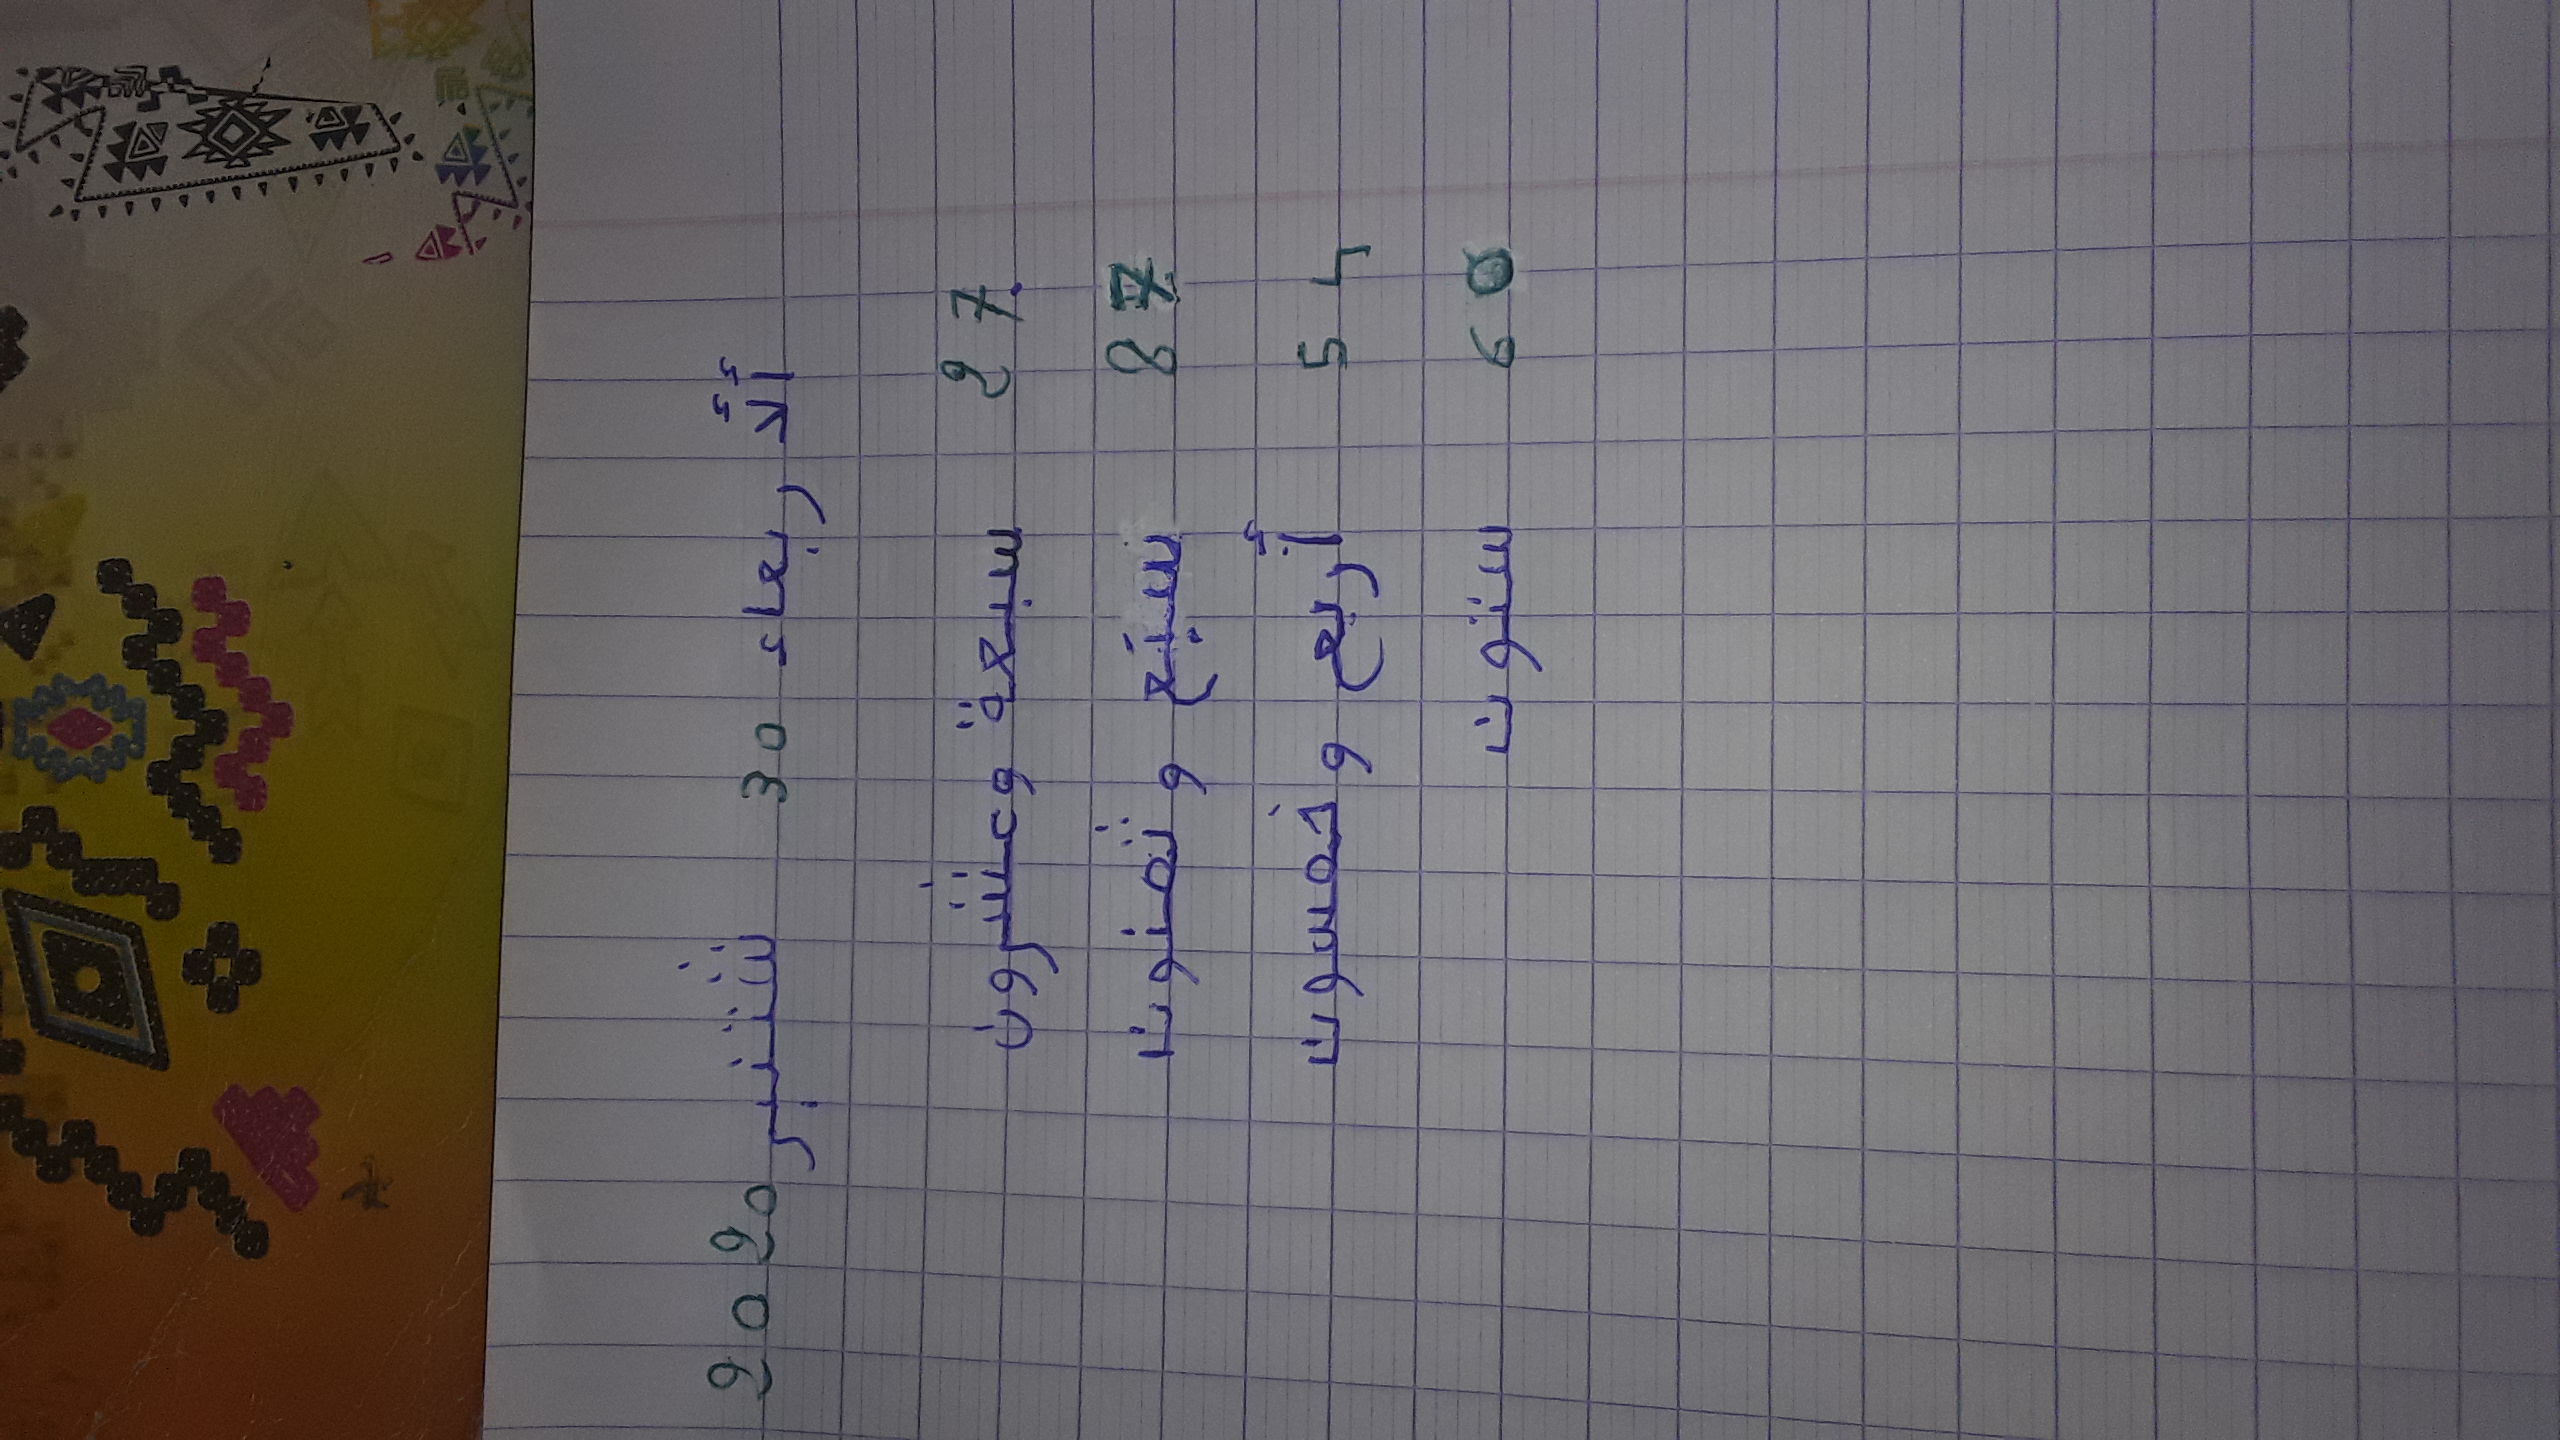 ألأربعاء 30 شتنبر 2020
27 سبعة وعشرون
87 سبع وثمنون
54 أربع وخمسون
60 ستون